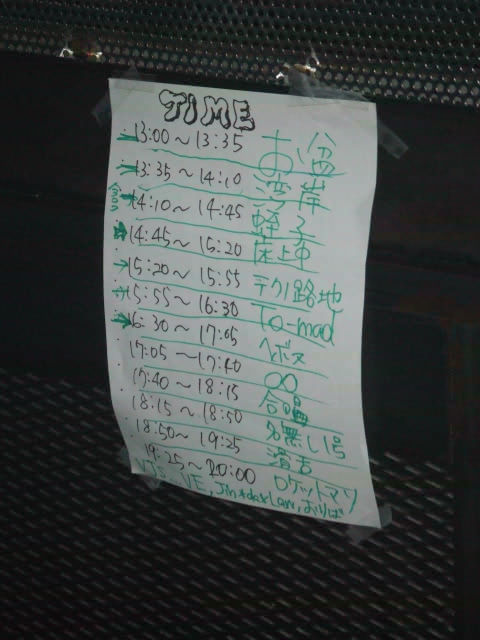 TIME
13:00～13:35 お盆
13:35～14:10 湾岸
14:10～14:45
14:45～15:20 床上
15:20～15:55 テクノ路地
15:55～16:30 To-mad
16:30～17:05
17:05～17:40 ∞
17:40～18:15 合唱
18:15～18:50 名無し1号
18:50～19:25
19:25～20:00 ロケットマツ
VJS VE, Jin